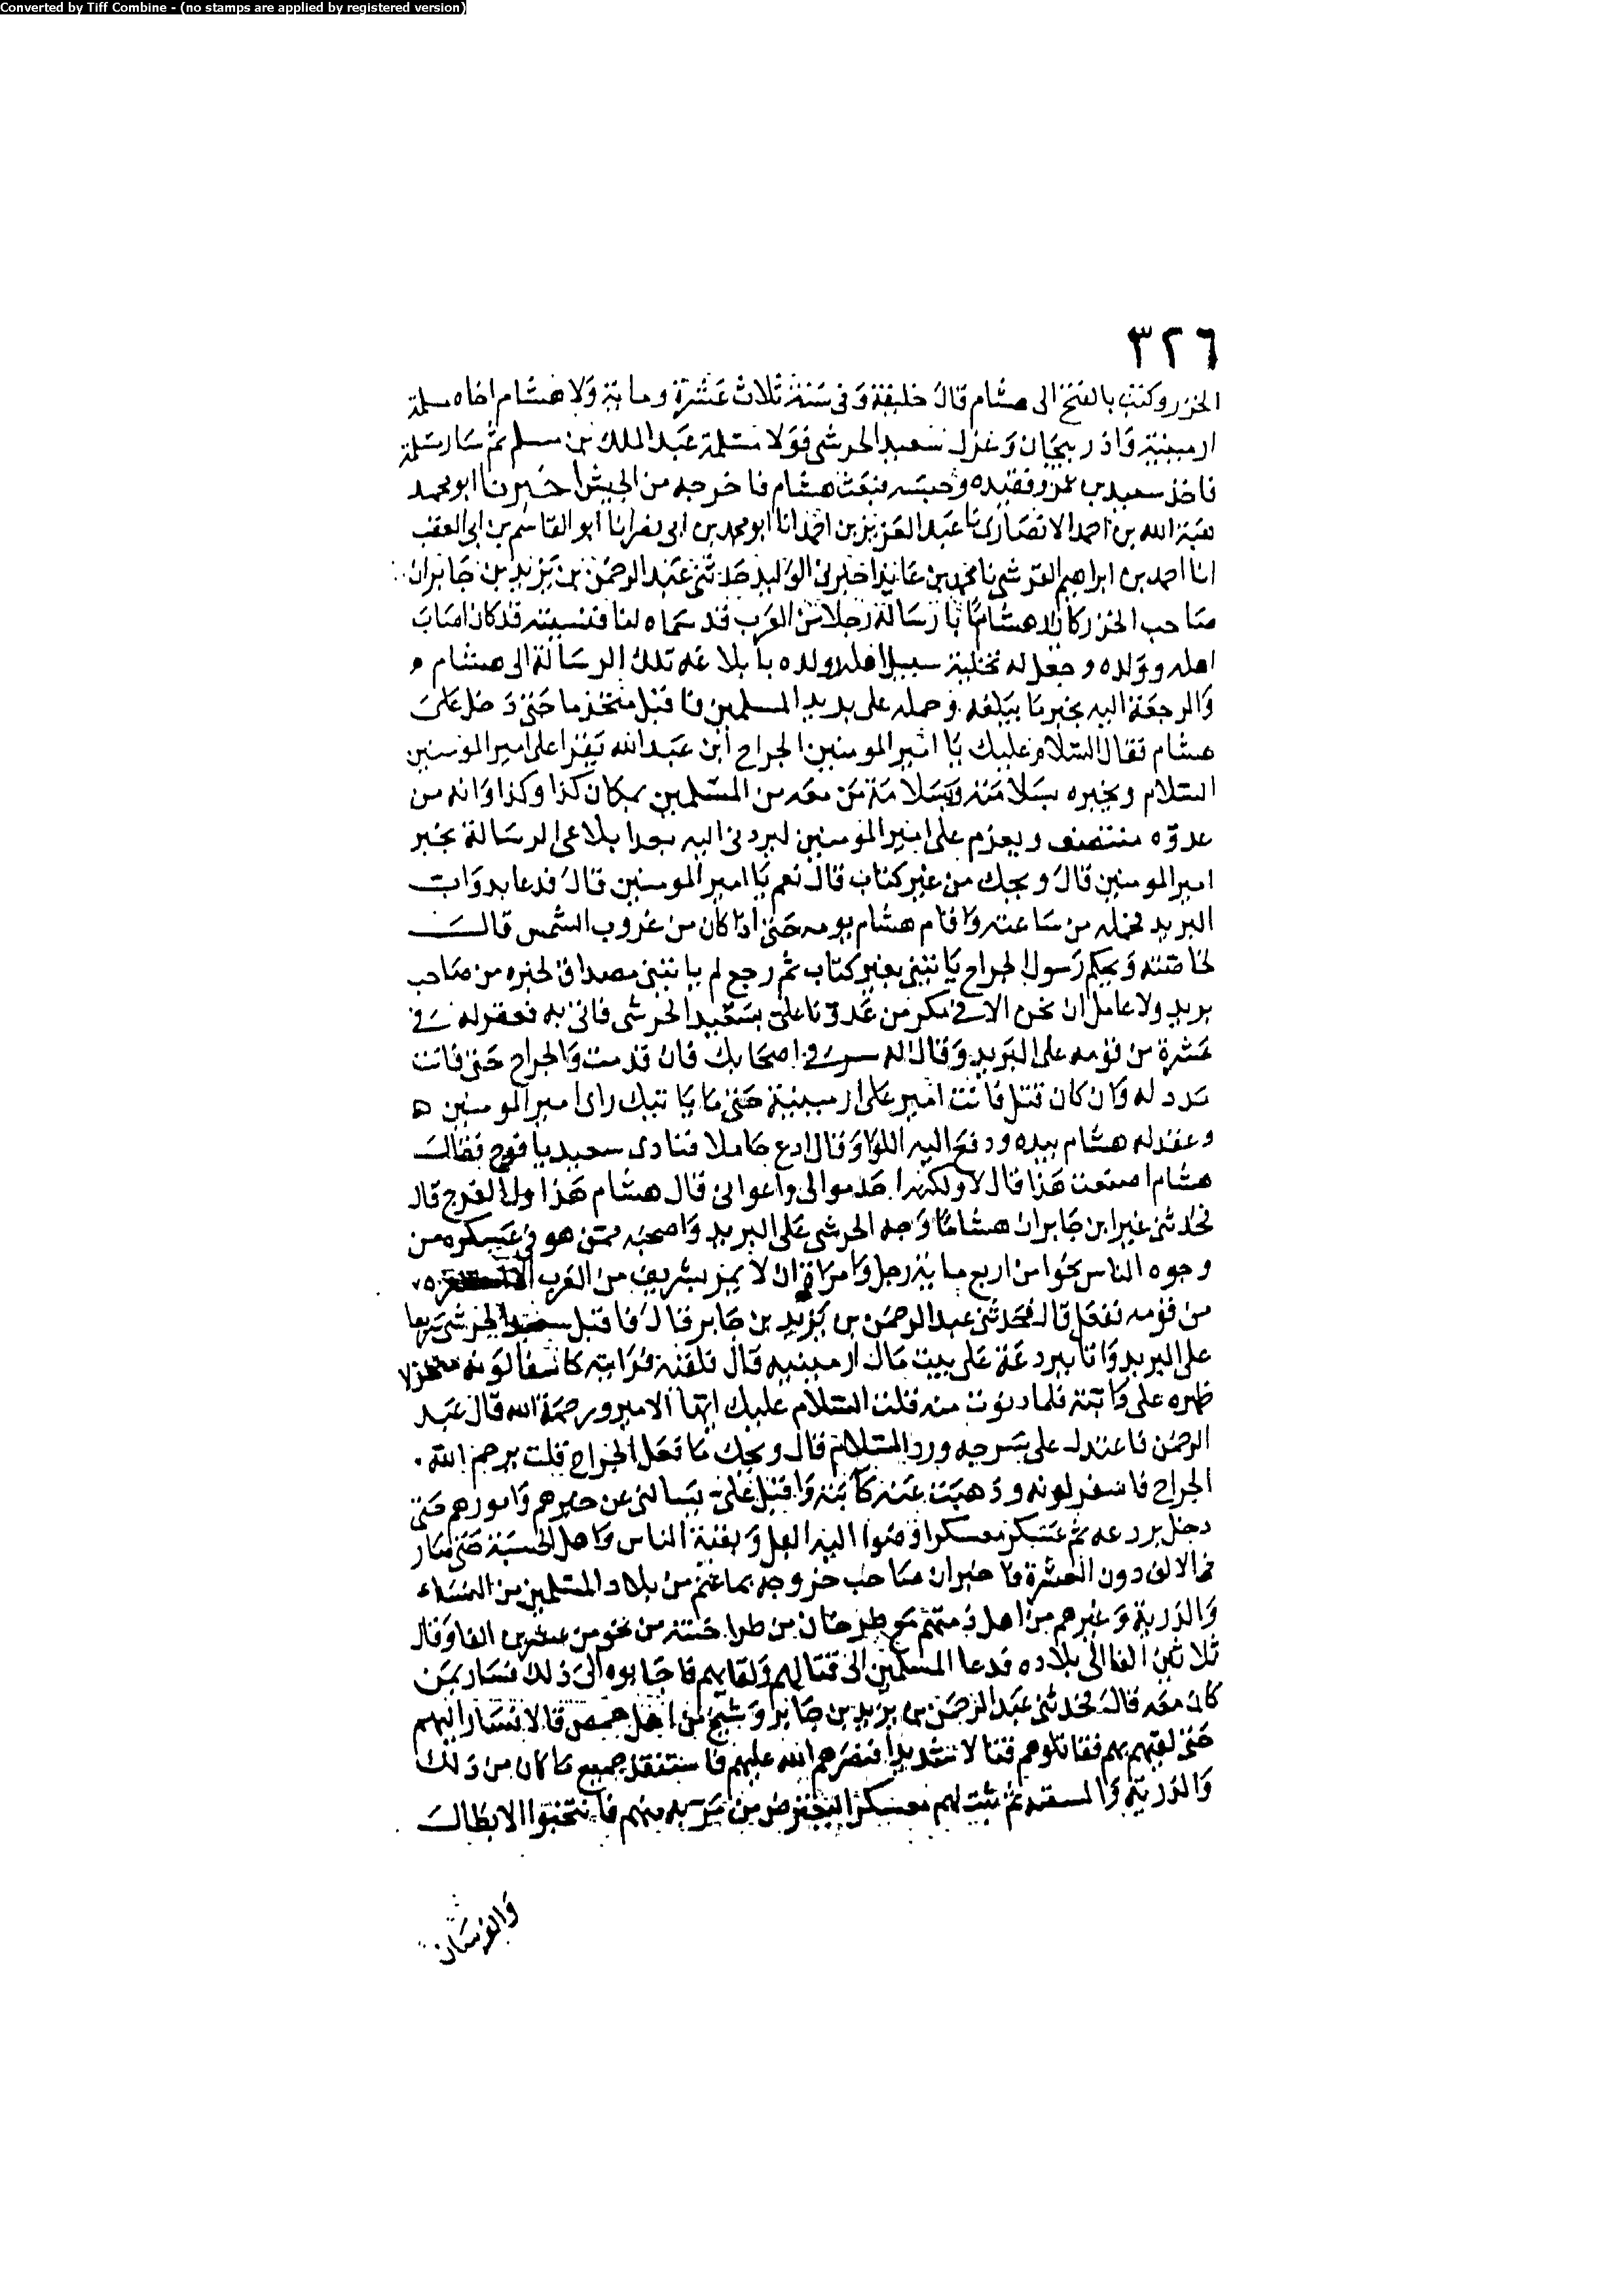 Converted by Tiff Combine - (no stamps are applied by registered version)
٣٢٦
الخزر وكتب بالفتح الى هشام قال خليفة وفى سنة ثلاث عشرة وماية ولا هشام اخاه مسلمة
ارمينية واذربيجان وعزل سعيد الحرشى فولا مسلمة عبد الملك بن مسلم ثم سار مسلمة
فاخذ سعيد بن عمرو فقيده وحبسه فبعث هشام فاخرجه من الحبس اخبرنا ابو محمد
هبة الله بن احمد الانصارى نا عبد العزيز بن احمد انا ابو محمد بن ابى نصر انا ابو القاسم بن ابى العقب
انا احمد بن ابراهيم القرشى نا محمد بن عايذ اخبرنى الوليد حدثنى عبد الرحمن بن يزيد بن جابر ان
صاحب الخزر كان هشاما با رسالة رجلا من العرب قد سماه لنا فنسيته قد كان اصاب
اهله وولده وجعل له تخلية سبيل اهله وولده بابلاغه تلك الرسالة الى هشام
والرجعة اليه بخبر ما يبلغه وحمله على بريد المسلمين فاقبل حتى دخل على
هشام فقال السلام عليك يا امير المومنين الجراح ابن عبد الله يقرا على امير المومنين
السلام ويخبره بسلامته وبسلامة من معه من المسلمين بمكان كذا وكذا وانه من
عدوه منتصف ويعزم على امير المومنين ليردنى اليه بعد ابلاغى الرسالة بخبر
امير المومنين قال ويحك من غير كتاب قال نعم يا امير المومنين قال فدعا بدواب
البريد فحمله من ساعته واقام هشام يومه حتى اذا كان من غروب الشمس قال
لخاصته ويحكم رسول الجراح ياتينى بغير كتاب ثم رجع لم ياتنى مصداق لخبره من صاحب
بريد ولا عامل ان نحن الا فى مكر من عدونا على بسعيد الحرشى فاتى به فعقد له فى
عشرة من قومه على البريد وقال له سر فى اصحابك فان قدمت والجراح حى فانت
مدد له وان كان قتل فانت امير على ارمينية حتى ما ياتيك راى امير المومنين
وعقد له هشام بيده ودفع اليه اللوا وقال ادع حاملا فنادى سعيد يا فرج فقال
هشام اصنعت هذا قال لا ولكن هذا مولى وادعوا لى قال هشام هذا والله الفرج قال
فحدثنى غير ابن جابر ان هشاما وجه الحرشى على البريد واصحبه ممن هو فى عسكره من
وجوه الناس نحوا من اربع ماية رجل وامره ان لا يمر بشريف من العرب
من قومه ففعل قال فحدثنى عبد الرحمن بن يزيد بن جابر قال فاقبل سعيد الحرشى سريعا
على البريد وانا ببردعة على بيت مال ارمينيه قال فلقته فرايته كاسفا لونه
ظهره على دابته فلما دنوت منه قلت السلام عليك ايها الامير ورحمة الله قال عبد
الرحمن فاعتدل على سرجه ورد السلام قال ويحك ما فعل الجراح قلت يرحم الله
الجراح فاسفر لونه وذهبت عنه كآبته واقبل على يسالنى عن خبرهم وامورهم حتى
دخل بردعه ثم عسكر معسكرا فضوا اليه الفل وبقية الناس واهل الحسبة حتى صار
فى الالف دون العشرة خبر ان صاحب خروجه بما غنم من بلاد المسلمين من النساء
والذرية وغيرهم من اهل ذمتهم مع طرخان من طراخنته من نحو من عشرين الفا وقال
ثلاثين الفا الى بلاده فدعا المسلمين الى قتالهم ولقايهم فاجابوه الى ذلك فسار بمن
كان معه قال فحدثنى عبد الرحمن بن يزيد بن جابر وشيخ من اهل حمص قالا فسار اليهم
حتى لقيهم بهم فقاتلوهم قتالا شديدا فنصرهم الله عليهم فاستنقذ جميع ما كان من ذلك
والذرية ثم بيت لهم معسكر من مر به منهم فانتخبوا الابطال
والفرسان